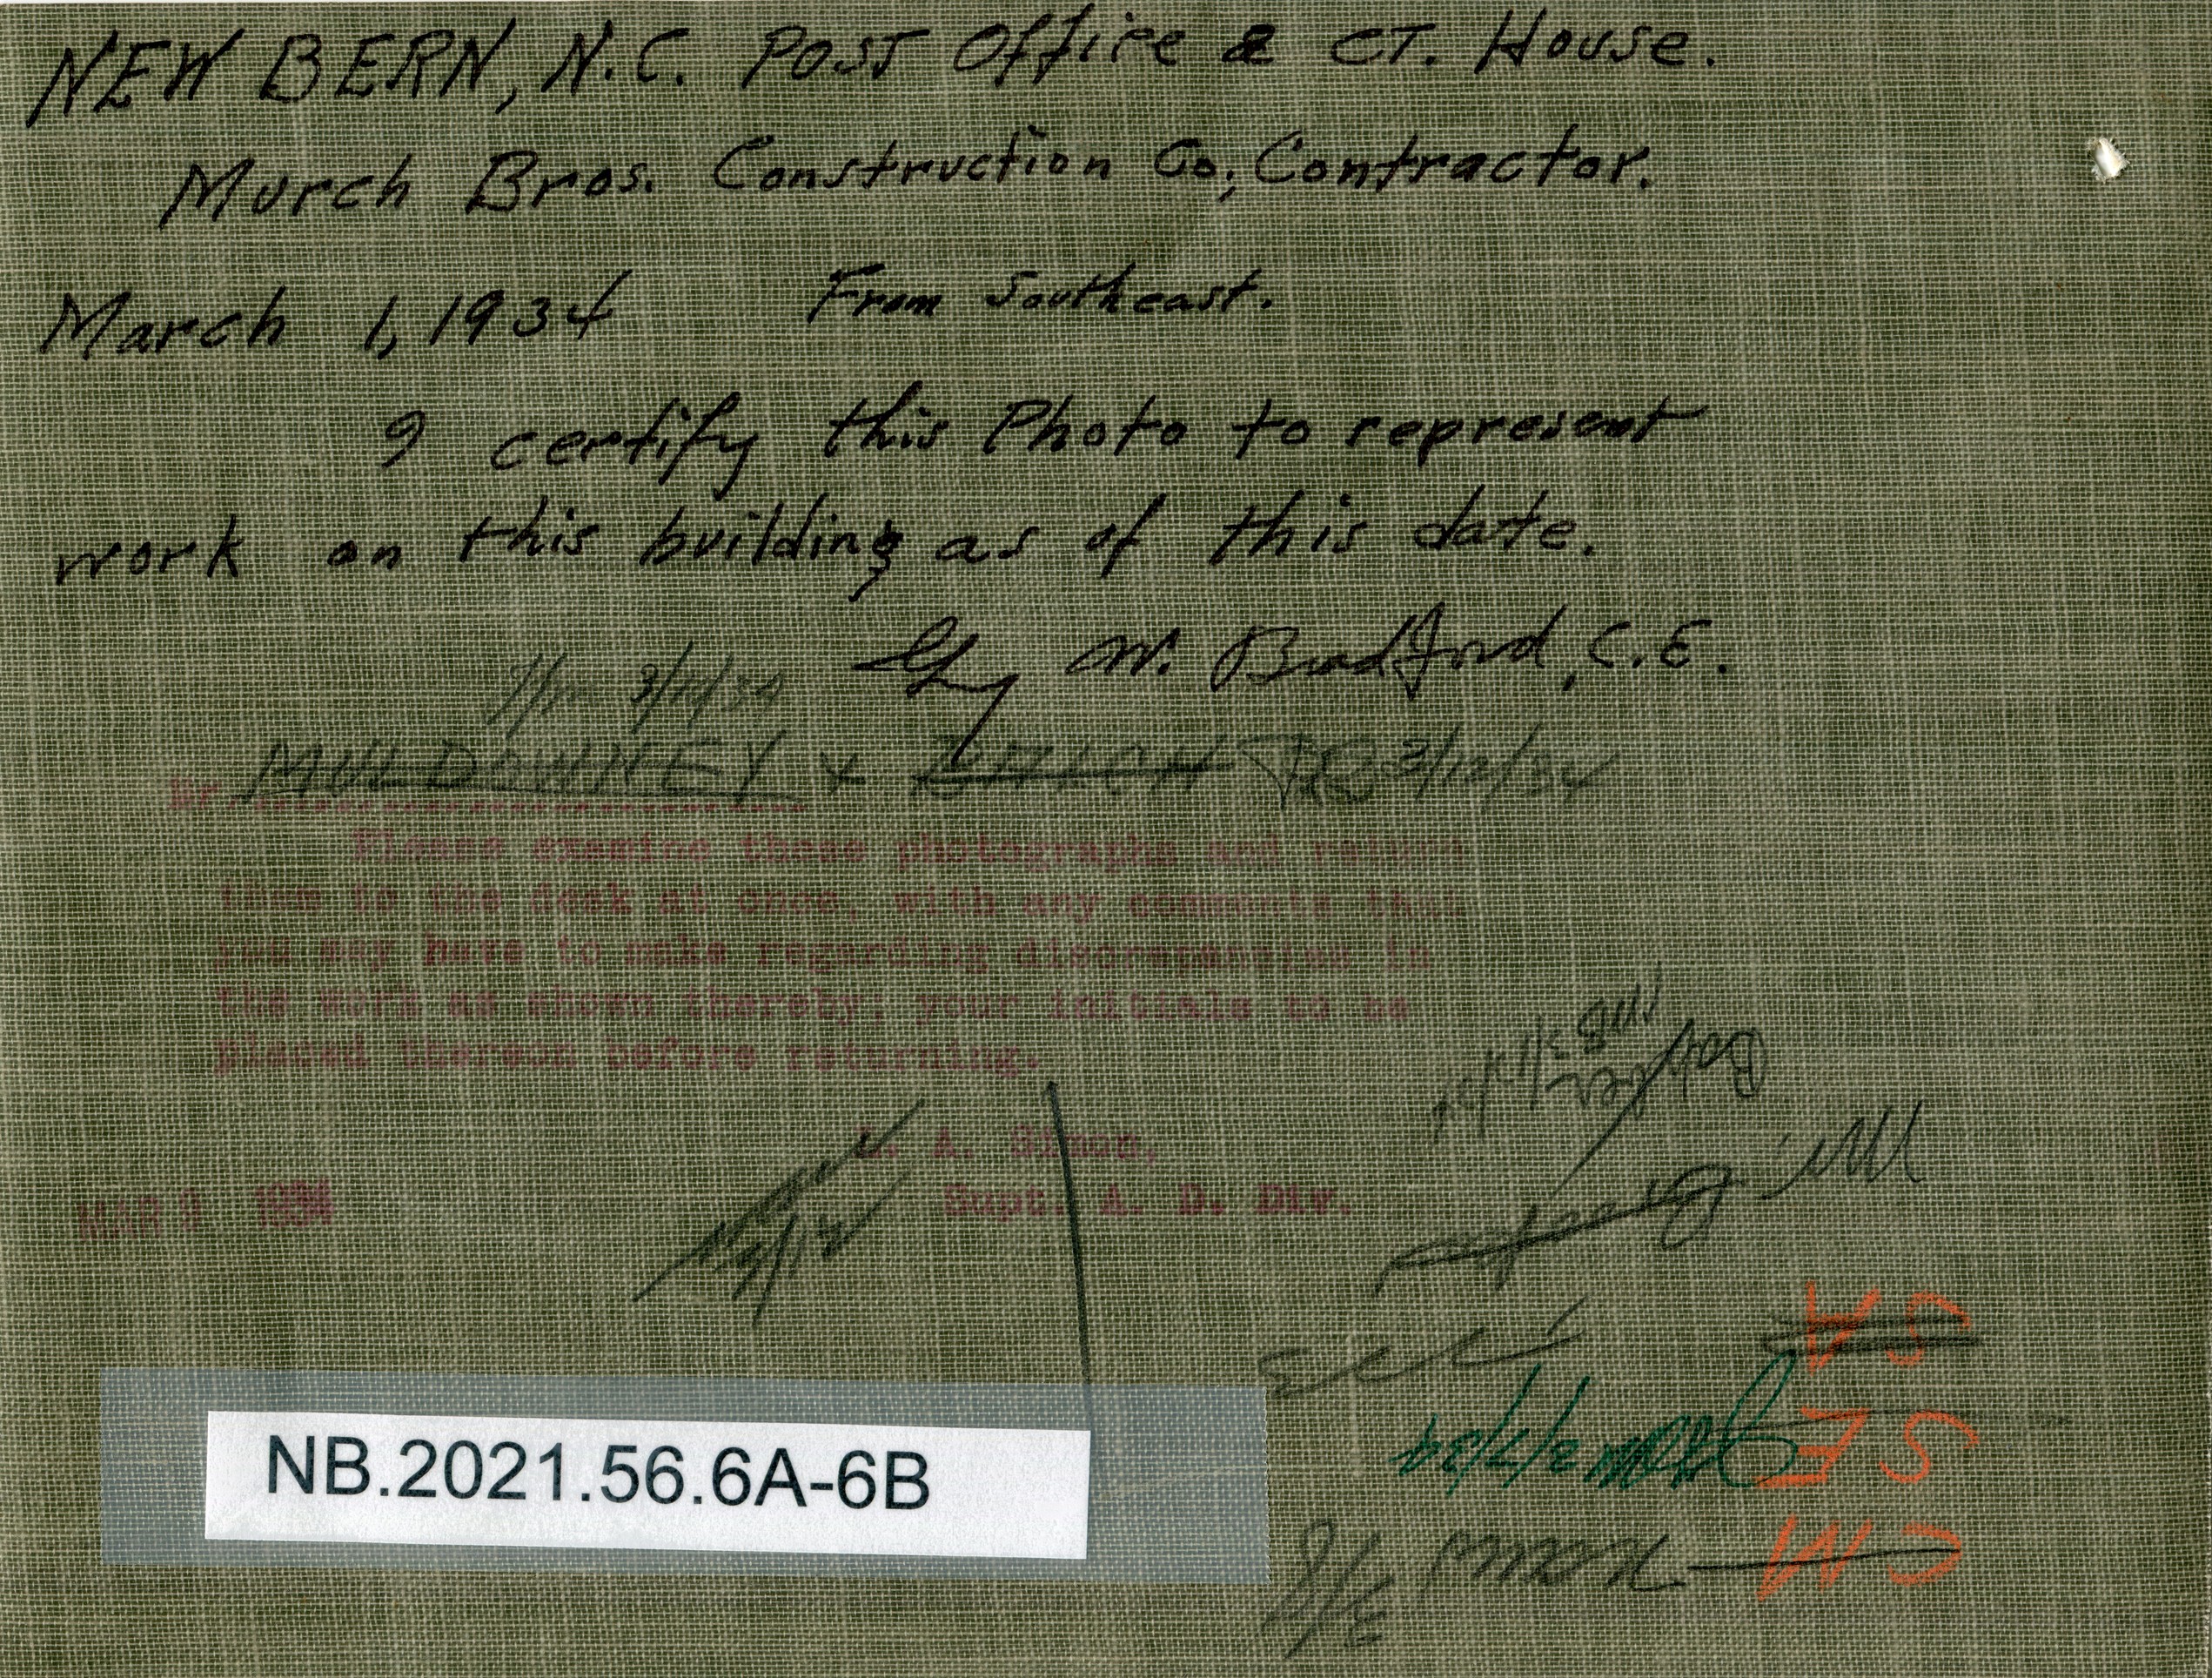 NEW BERN, N.C. Post Office & CT. House.
Murch Bros. Construction Co., Contractor.
March 1, 1934 From Southeast.
I certify this Photo to represent
work on this building as of this date.
Guy W. Bradford, C.E.
3/12/34
Mr. MULDOWNEY + 3/12/34
Please examine these photographs and return
them to the desk at once, with any comments that
you may have to make regarding discrepancies in
the work as shown thereby; your initials to be
placed thereon before returning.
L. A. Simon,
Supt. A. D. Div.
MAR 9 1934
3/12
NB.2021.56.6A-6B
CM
3/8
SE 3/7/34
SA